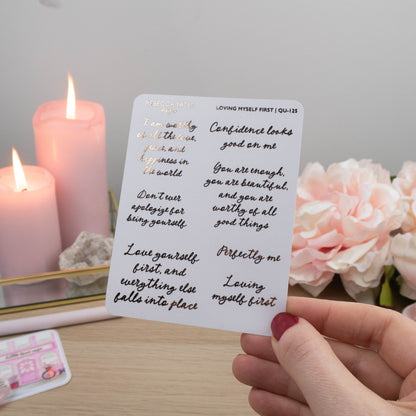 LOVING MYSELF FIRST | QU-125
I am worthy
of all the love,
and
happiness in
the world
Don't ever
apologize for
being yourself
Love yourself
first, and
everything else
falls into place
Confidence looks
good on me
You are enough,
you are beautiful,
and you are
worthy of all
good things
Perfectly me
Loving
myself first